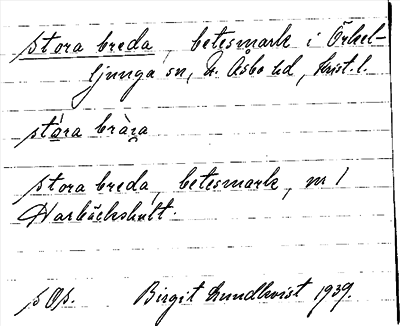 stora breda, betesmark i Örkel-
ljunga sn, N. Åsbo hd, Krist. l.
stóra bràra
stora breda, betesmark, m 1
Harbäckshult.
sOp. Birgit Lundkvist 1939.